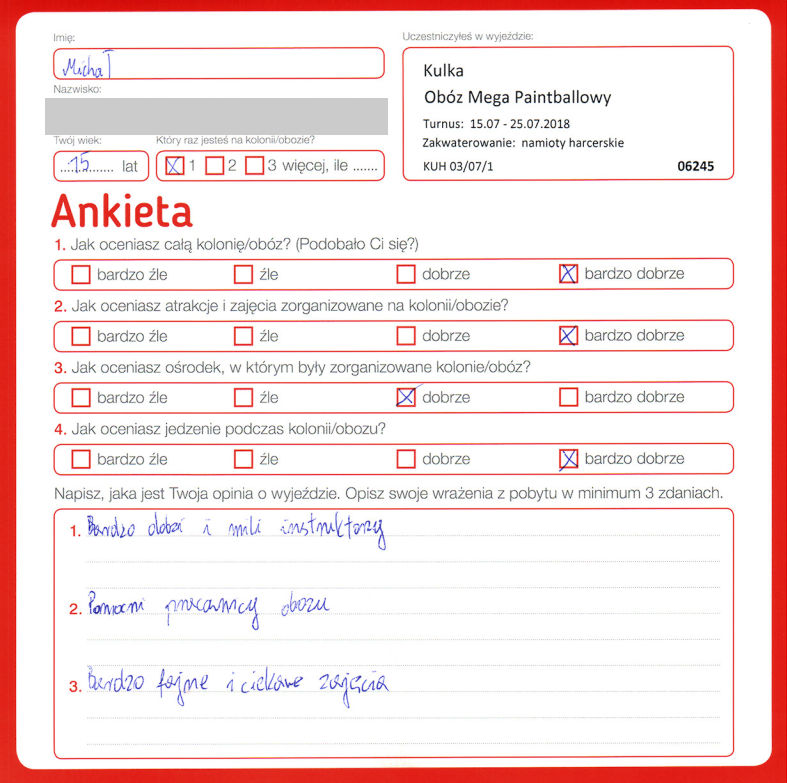 Imię:
Michał
Nazwisko:
Twój wiek:
15 lat
Który raz jesteś na kolonii/obozie?
1 2 3 więcej, ile .......
Uczestniczyłeś w wyjeździe:
Kulka
Obóz Mega Paintballowy
Turnus: 15.07 - 25.07.2018
Zakwaterowanie: namioty harcerskie
KUH 03/07/1 06245
Ankieta
1. Jak oceniasz całą kolonię/obóz? (Podobało Ci się?)
bardzo źle źle dobrze bardzo dobrze
2. Jak oceniasz atrakcje i zajęcia zorganizowane na kolonii/obozie?
bardzo źle źle dobrze bardzo dobrze
3. Jak oceniasz ośrodek, w którym były zorganizowane kolonie/obóz?
bardzo źle źle dobrze bardzo dobrze
4. Jak oceniasz jedzenie podczas kolonii/obozu?
bardzo źle źle dobrze bardzo dobrze
Napisz, jaka jest Twoja opinia o wyjeździe. Opisz swoje wrażenia z pobytu w minimum 3 zdaniach.
1. Bardzo dobzi i mili instruktorzy
2. Pomocni pracownicy obozu
3. Bardzo fajne i ciekawe zajęcia